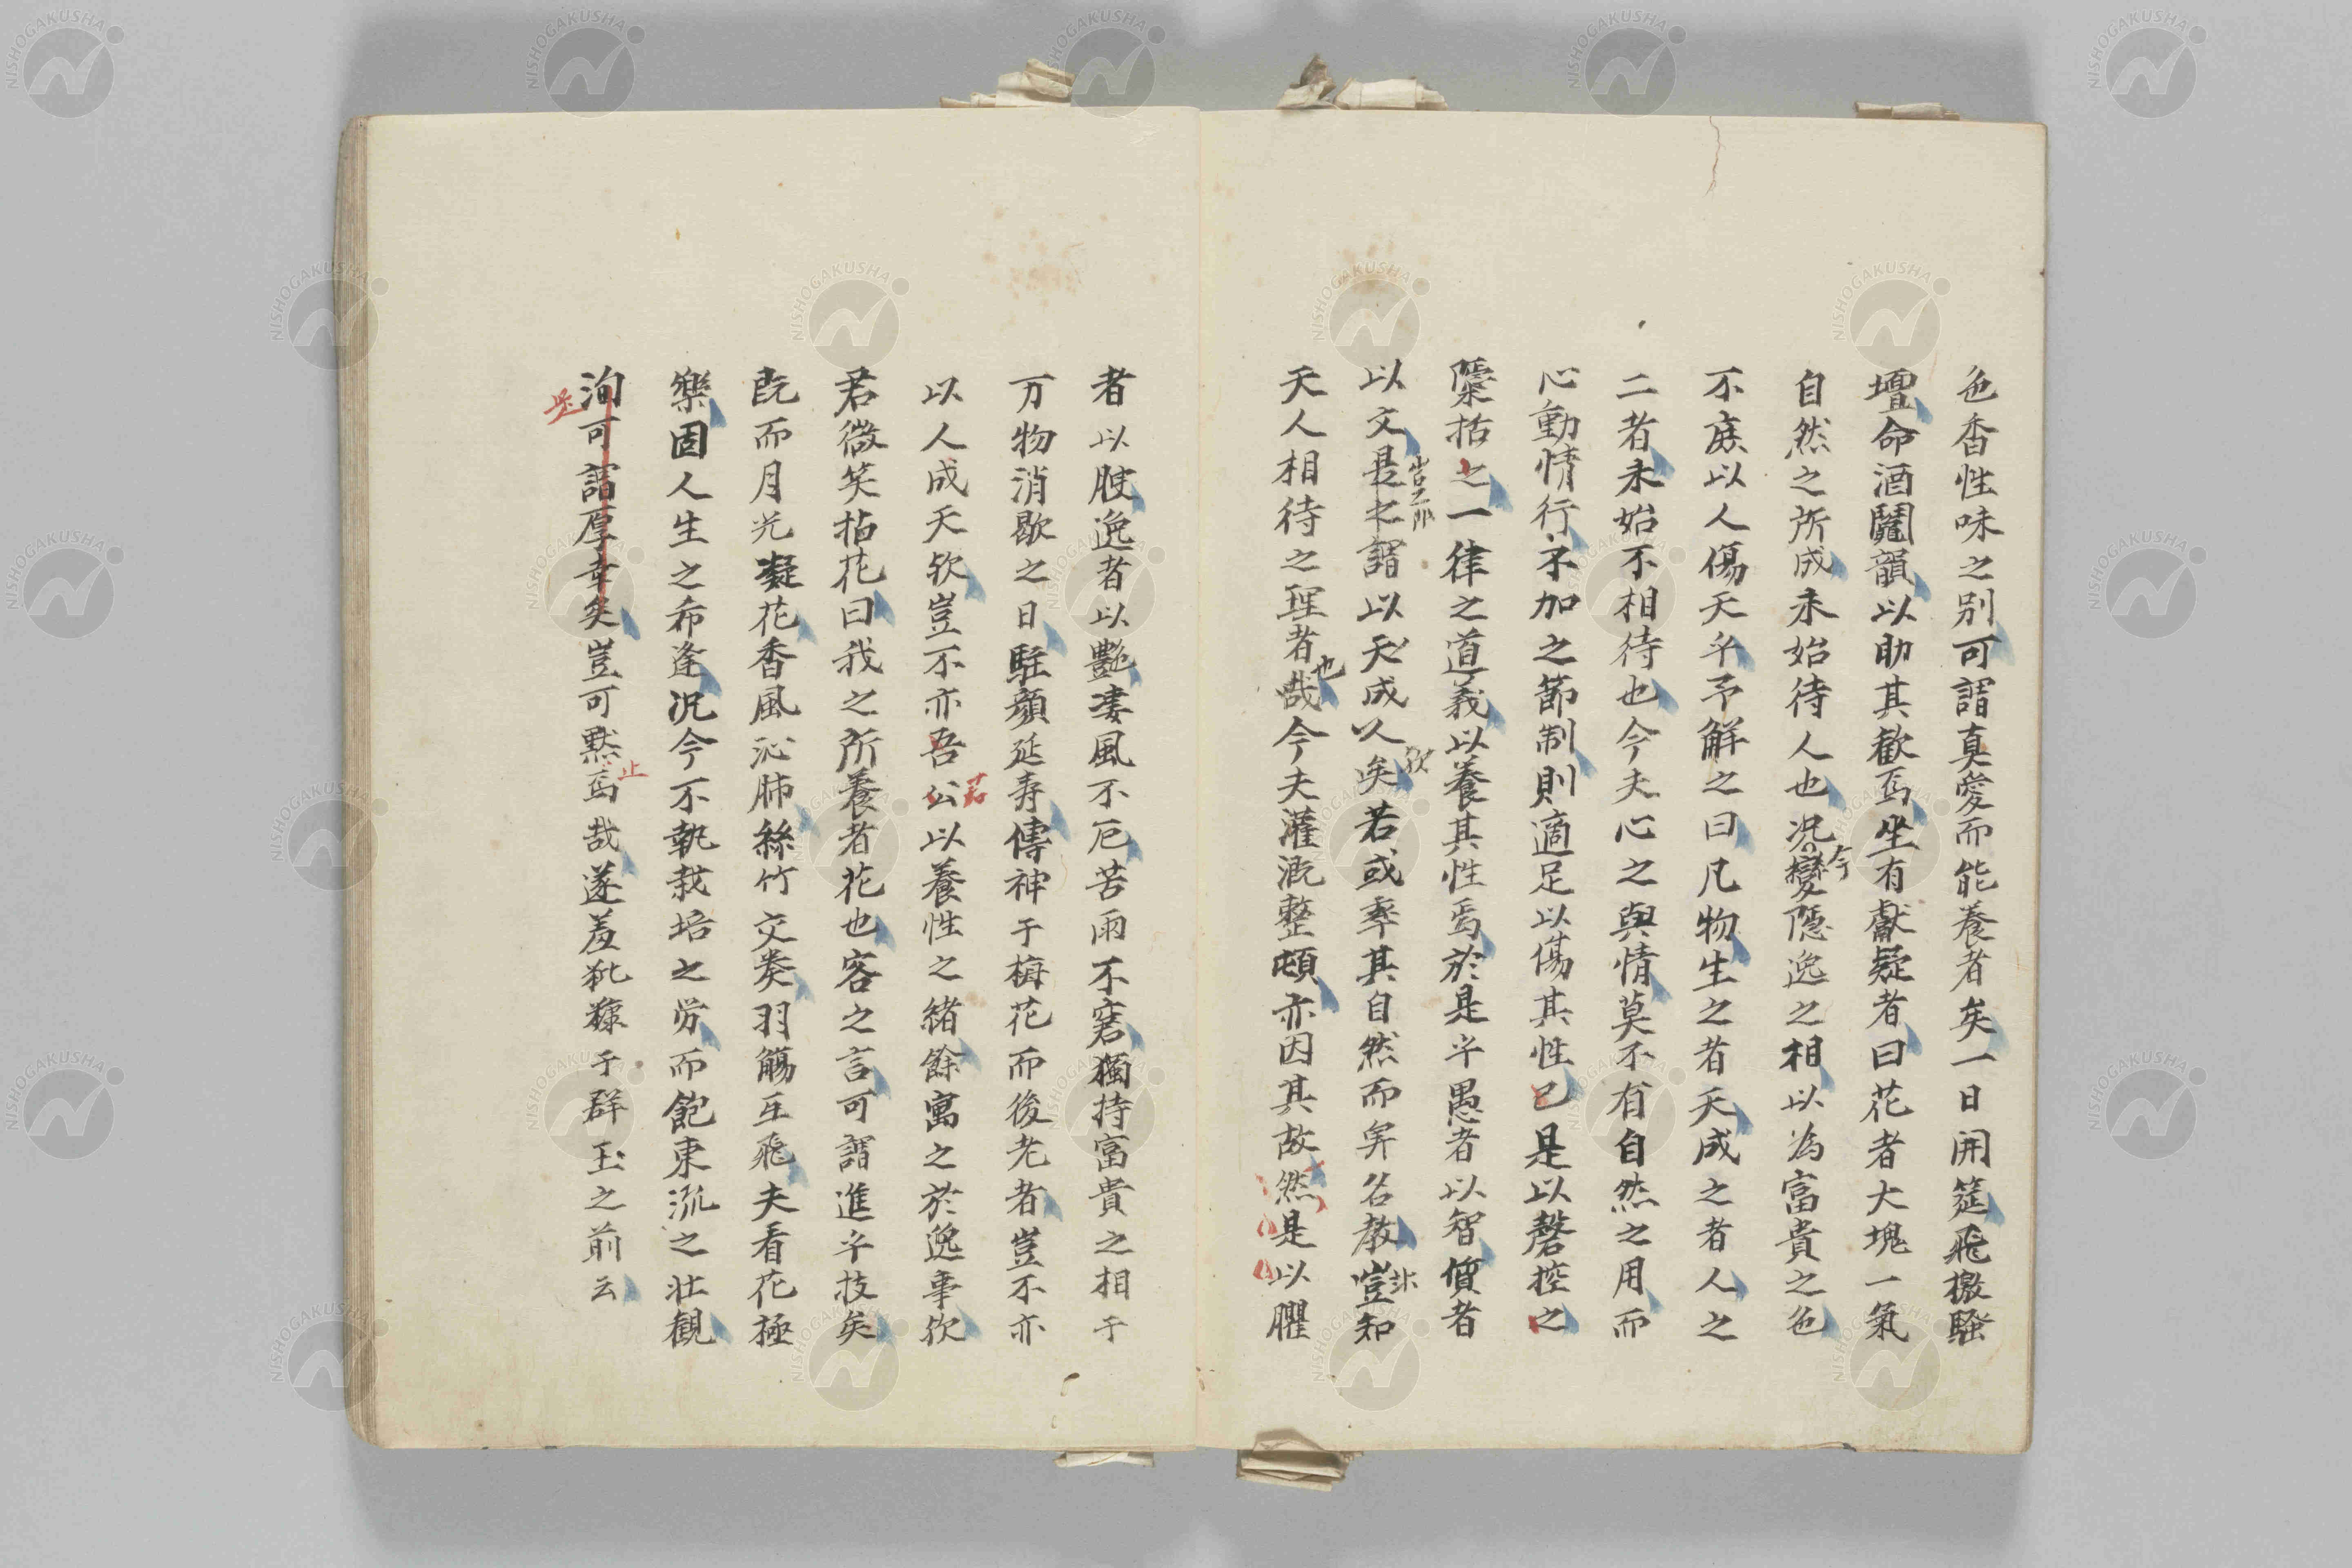 色香性味之別可謂真愛而能養者矣一日開筵飛檄騒
壇命酒鬪韻以助其歓焉坐有獻疑者曰花者大塊一氣
自然之所成未始待人也況今變隱逸之相以為富貴之色
不庶以人傷天乎予解之曰凡物生之者天成之者人之
二者未始不相待也今夫心之與情莫不有自然之用而
心動情行不加之節制則適足以傷其性已是以磬控之
檃括之一律之道義以養其性焉於是乎愚者以智質者
以文是之謂以天成人矣若或率其自然而弁名教豈知
豈之所
欤
非
天人相待之理者哉今夫灌漑整頓亦因其故然是以臞
也
者以腴逸者以艶凄風不厄苦雨不窘獨持富貴之相于
万物消歇之日駐顔延寿傳神于梅花而後老者豈不亦
以人成天欤豈不亦吾公以養性之緒餘寓之於逸事欤
君
君微笑拈花曰我之所養者花也客之言可謂進乎技矣
既而月光凝花香風沁肺絲竹交奏羽觴互飛夫看花極
樂固人生之希逢況今不執栽培之労而飽東流之壮観
洵可謂厚幸矣豈可黙焉哉遂羞秕糠于群玉之前云
止
NISHOGAKUSHA